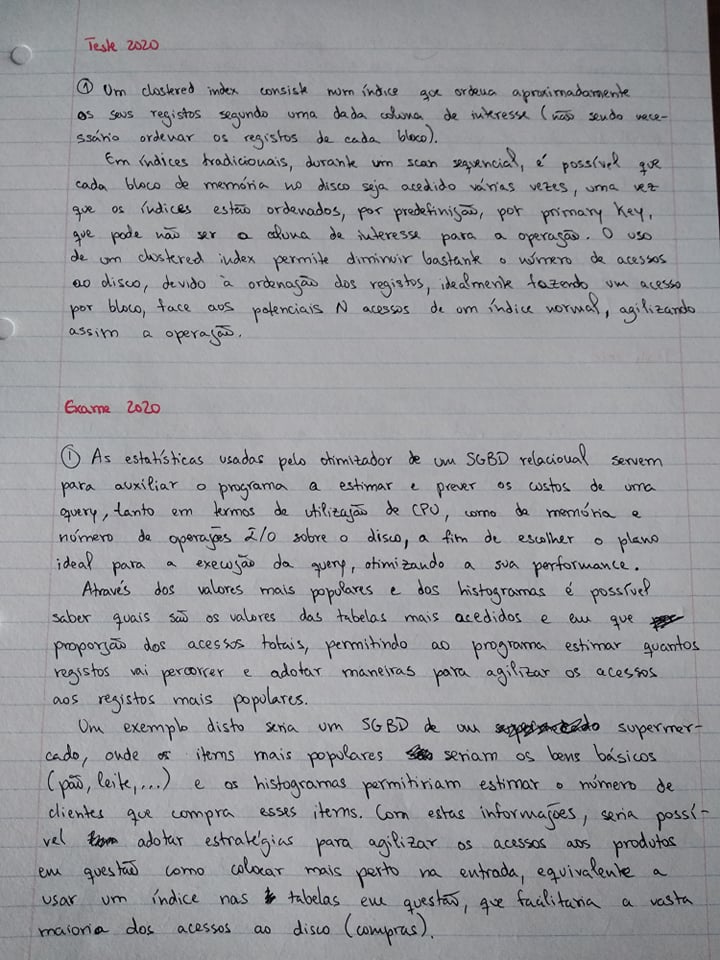 Teste 2020
① Um clostered index consiste num índice que ordena aproximadamente
os seus registos segundo uma dada coluna de interesse (não sendo nece-
ssário ordenar os registos de cada bloco).
Em índices tradicionais, durante um scan sequencial, é possível que
cada bloco de memória no disco seja acedido várias vezes, uma vez
que os índices estão ordenados, por predefinição, por primary key,
que pode não ser a coluna de interesse para a operação. O uso
de um clustered index permite diminuir bastante o número de acessos
ao disco, devido à ordenação dos registos, idealmente fazendo um acesso
por bloco, face aos potenciais N acessos de um índice normal, agilizando
assim a operação.
Exame 2020
① As estatísticas usadas pelo otimizador de um SGBD relacional servem
para auxiliar o programa a estimar e prever os custos de uma
query, tanto em termos de utilização de CPU, como de memória e
número de operações I/O sobre o disco, a fim de escolher o plano
ideal para a execução da query, otimizando a sua performance.
Através dos valores mais populares e dos histogramas é possível
saber quais são os valores das tabelas mais acedidos e em que
proporção dos acessos totais, permitindo ao programa estimar quantos
registos vai percorrer e adotar maneiras para agilizar os acessos
aos registos mais populares.
Um exemplo disto seria um SGBD de um supermer-
cado, onde os items mais populares seriam os bens básicos
(pão, leite, ...) e os histogramas permitiriam estimar o número de
clientes que compra esses items. Com estas informações, seria possí-
vel adotar estratégias para agilizar os acessos aos produtos
em questão como colocar mais perto na entrada, equivalente a
usar um índice nas tabelas em questão, que facilitaria a vasta
maioria dos acessos ao disco (compras).